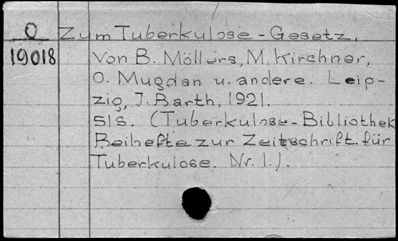 O Zum Tuberkulose-Gesetz.
19018 Von B. Möllers, M. Kirchner,
O. Mugdan u. andere. Leip-
zig, J. Barth, 1921.
51S. (Tuberkulose-Bibliothek
Beihefte zur Zeitschrift. für
Tuberkulose. Nr. 1.).